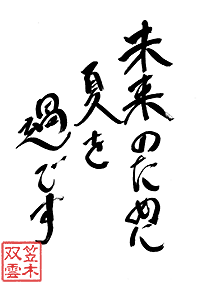 未来のために
夏を
過ごす
笠木
双雲